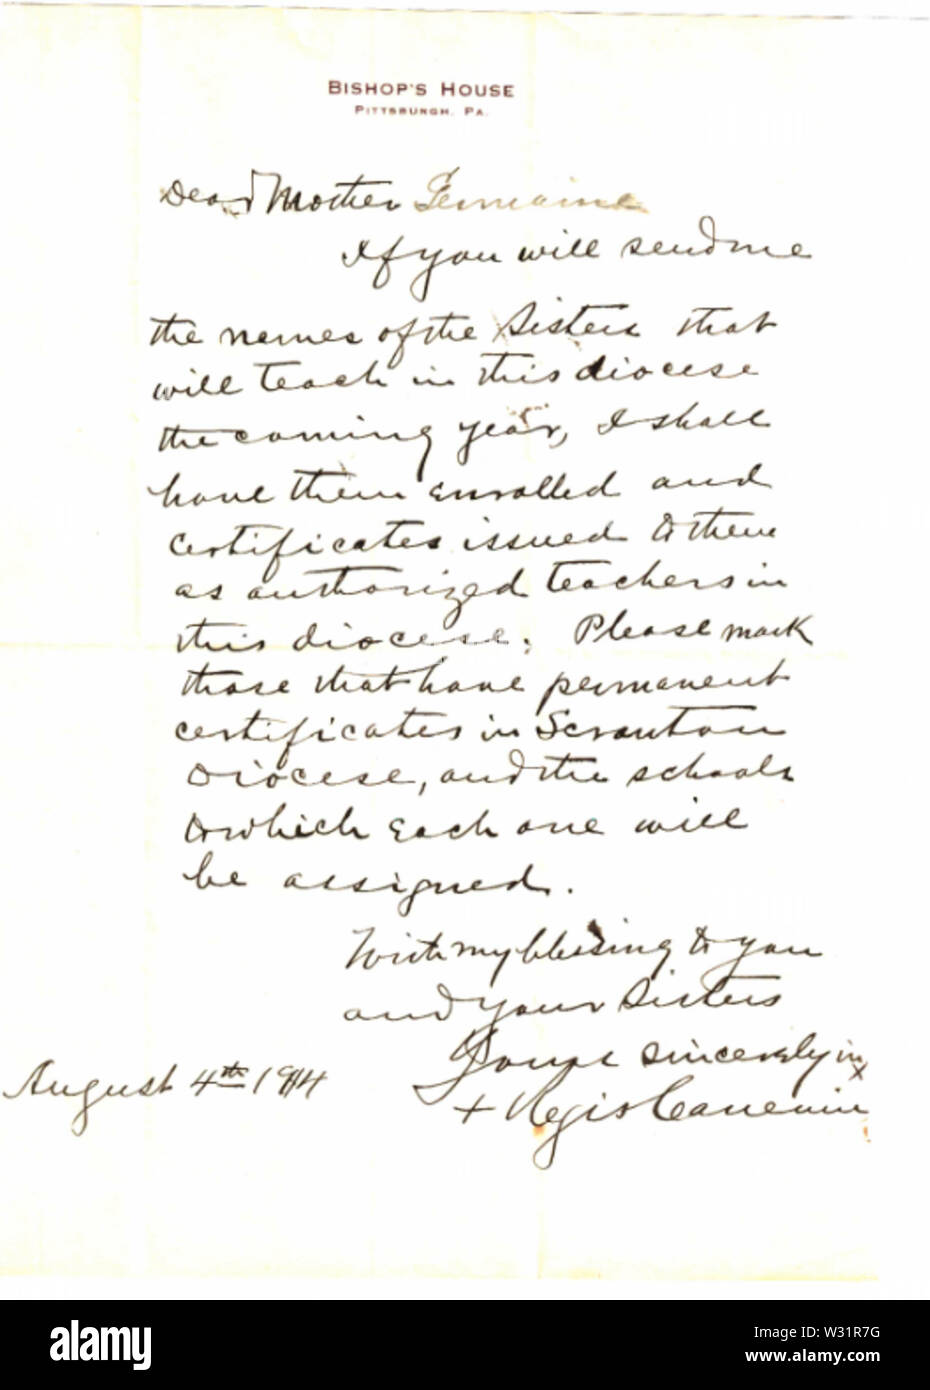 BISHOP'S HOUSE
PITTSBURGH, PA.
Dear Mother Germaine
If you will send me
the names of the Sisters that
will teach in this diocese
the coming year, I shall
have them enrolled and
certificates issued to them
as authorized teachers in
this diocese. Please mark
those that have permanent
certificates in Scranton
Diocese, and the schools
to which each one will
be assigned.
With my blessing to you
and your Sisters
Yours sincerely in X
August 4th 1914
+ Regis Canevin
alamy
a
alamy
a
a
alamy
Image ID: W31R7G
www.alamy.com